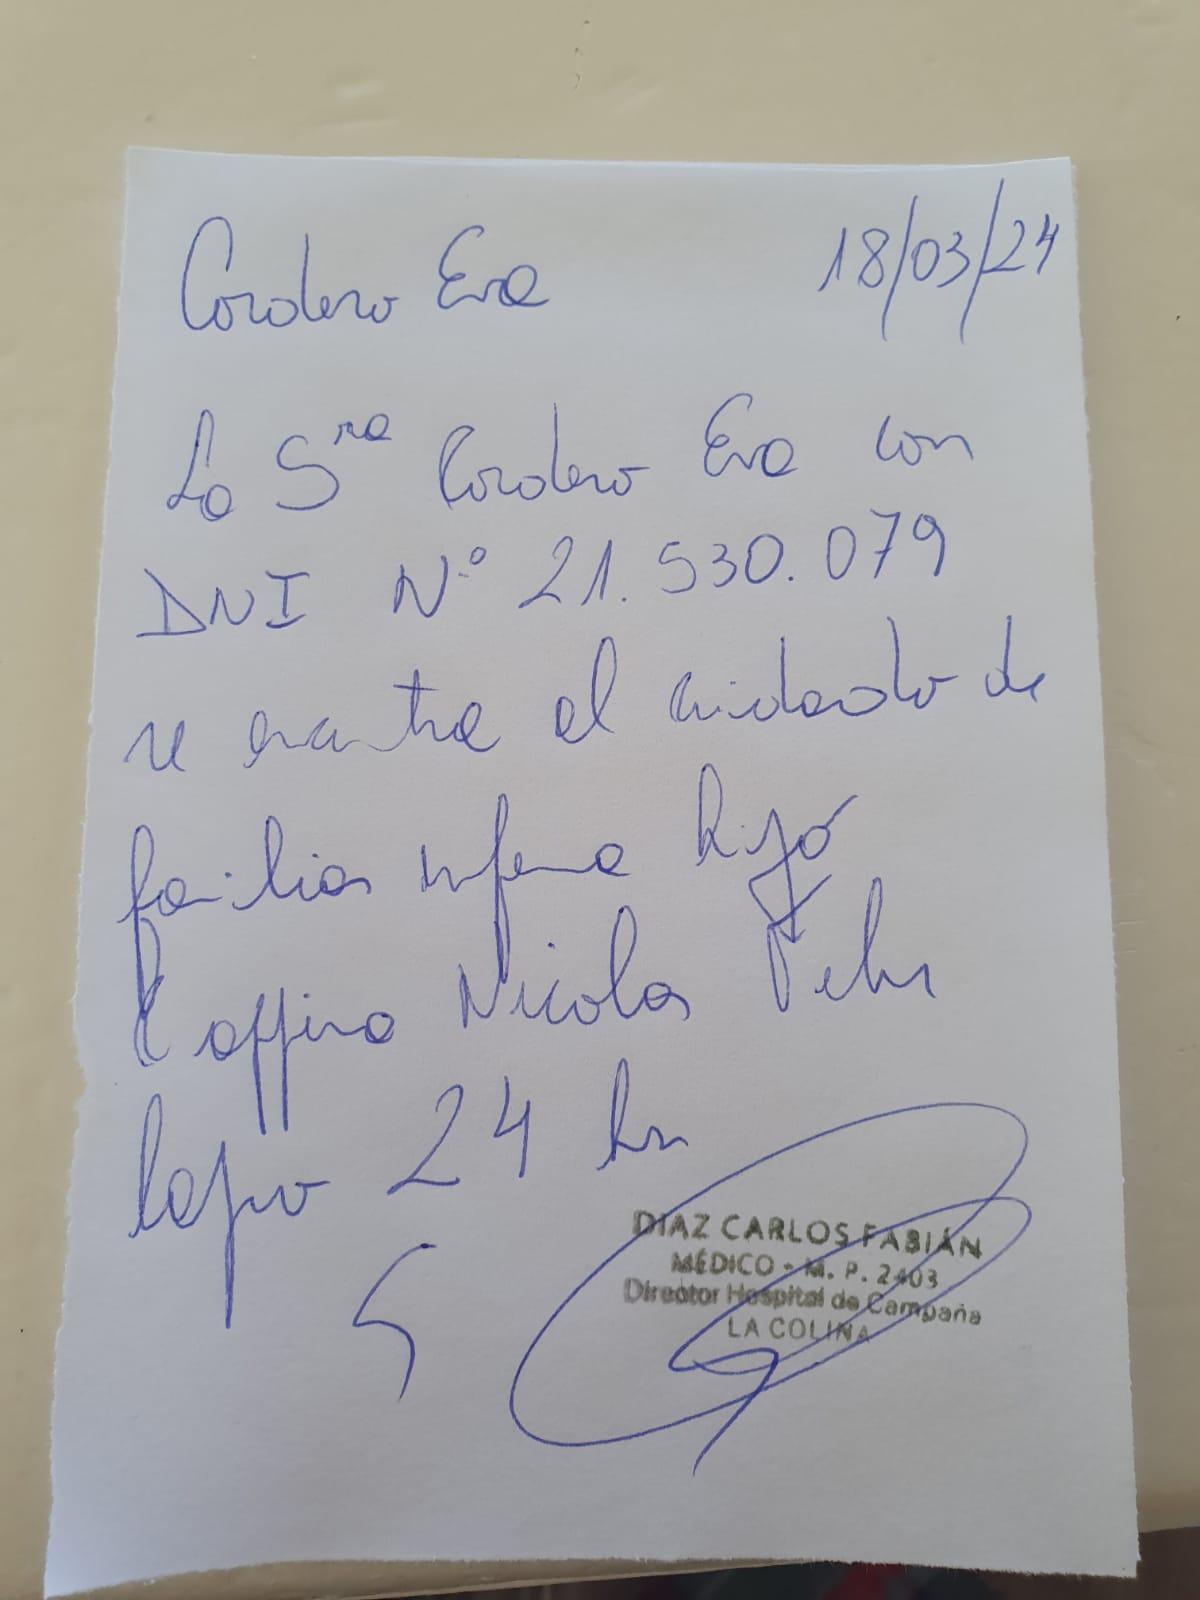 Cordero Eva 18/03/24
La Sra Cordero Eva con
DNI Nº 21.530.079
se encuentra al cuidado de
familiar enferma hijo
Nicolas
lapso 24 hs
DIAZ CARLOS FABIÁN
MÉDICO - M. P. 2403
Director Hospital de Campaña
LA COLINA